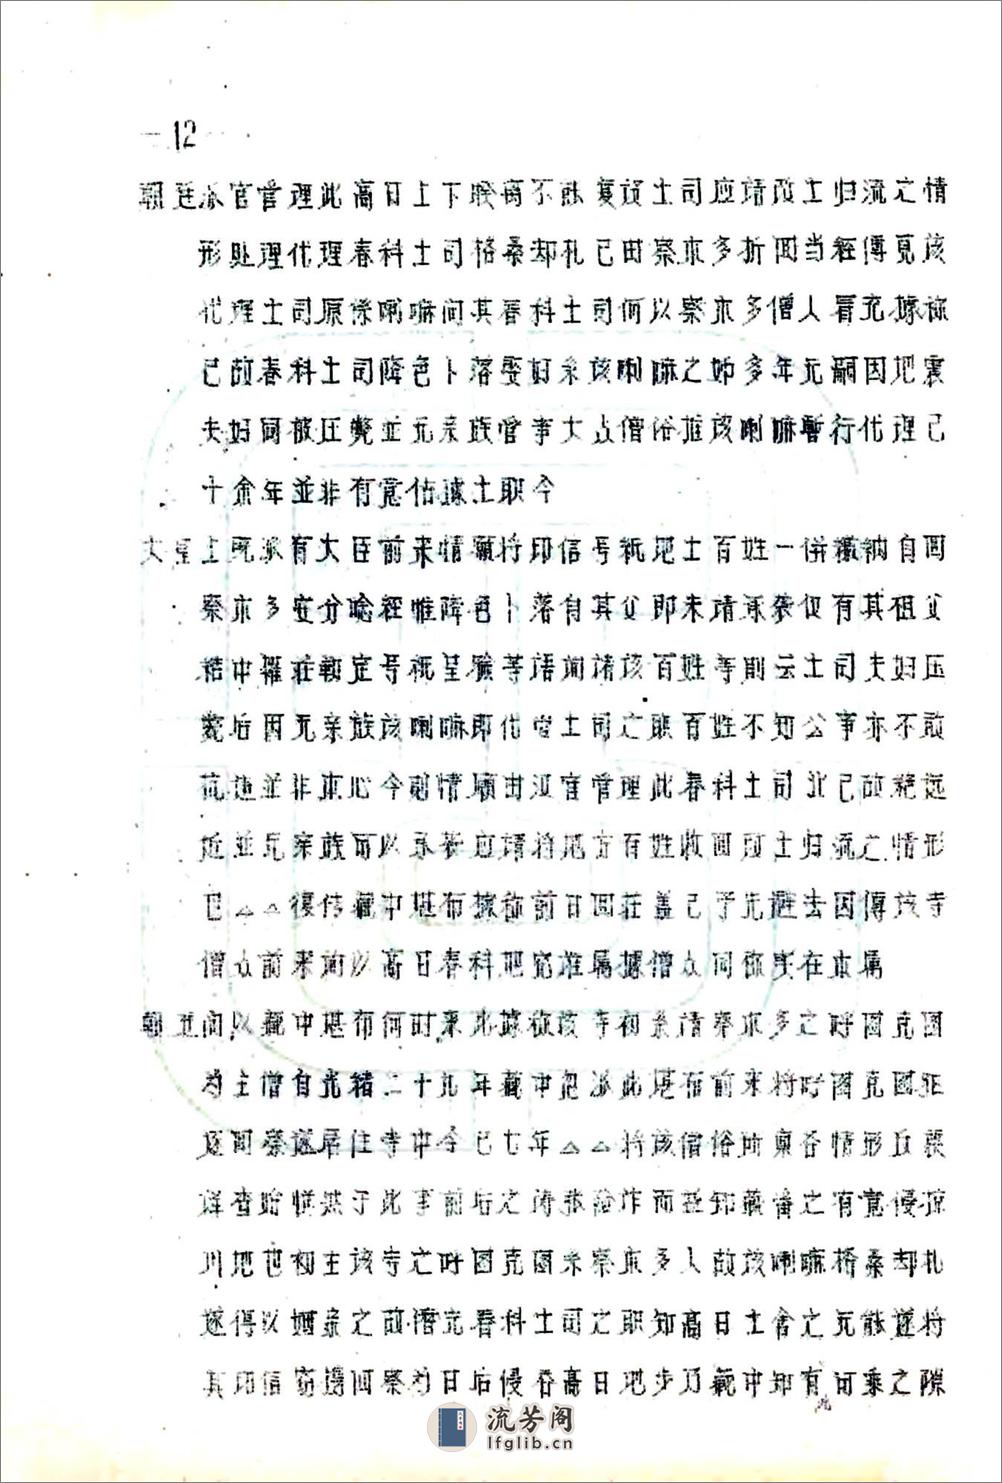 12
朝廷派官管理此高日上下 不 复设土司应请改土归流之情
形处理代理春科土司格桑却札已由察木多折回当经传见该
代理土司原系喇嘛问其春科土司何以察木多僧人冒充据称
已故春科土司降色卜落娶妇系该喇嘛之姊多年无嗣因地震
夫妇同被压毙並无亲族管事大 僧俗 该喇嘛暂行代理已
十余年並非有意估据土职今
大皇上既派有大臣前来情愿将印信号纸地土百姓一併缴纳自回
察木多安分唸经惟降色卜落自其父即未请承袭仅有其祖父
结中 号纸呈验等语询诸该百姓等则云土司夫妇压
毙后因无亲族该喇嘛即代 土司之职百姓不知公事亦不敢
並非 心今则情愿由汉官管理此春科土司 已故绝远
近並无亲族可以承袭应请将地方百姓收回改土归流之情形
也△△復传藏中堪布据称前日回庄盖已予先避去因传该寺
僧众前来询以高日春科地究谁属据僧众同称实在本属
朝廷问以藏中堪布何时来此据称该寺初系请察木多之呼图克图
为主僧自光绪二十九年藏中忽派此堪布前来将呼图克图
逐回察遂居住寺中今已七年△△将该僧俗所禀各情形反覆
详查 恍然于此事前后之 张 诈而益知藏番之有意侵掠
川地也初主该寺之呼图克图系察木多人故该喇嘛格桑却札
遂得以姻亲之故僭充春科土司之职知高日土舍之无能遂将
其印信窃携回察为日后侵吞高日地步乃藏中知有可乘之隙
流芳阁
lfglib.cn